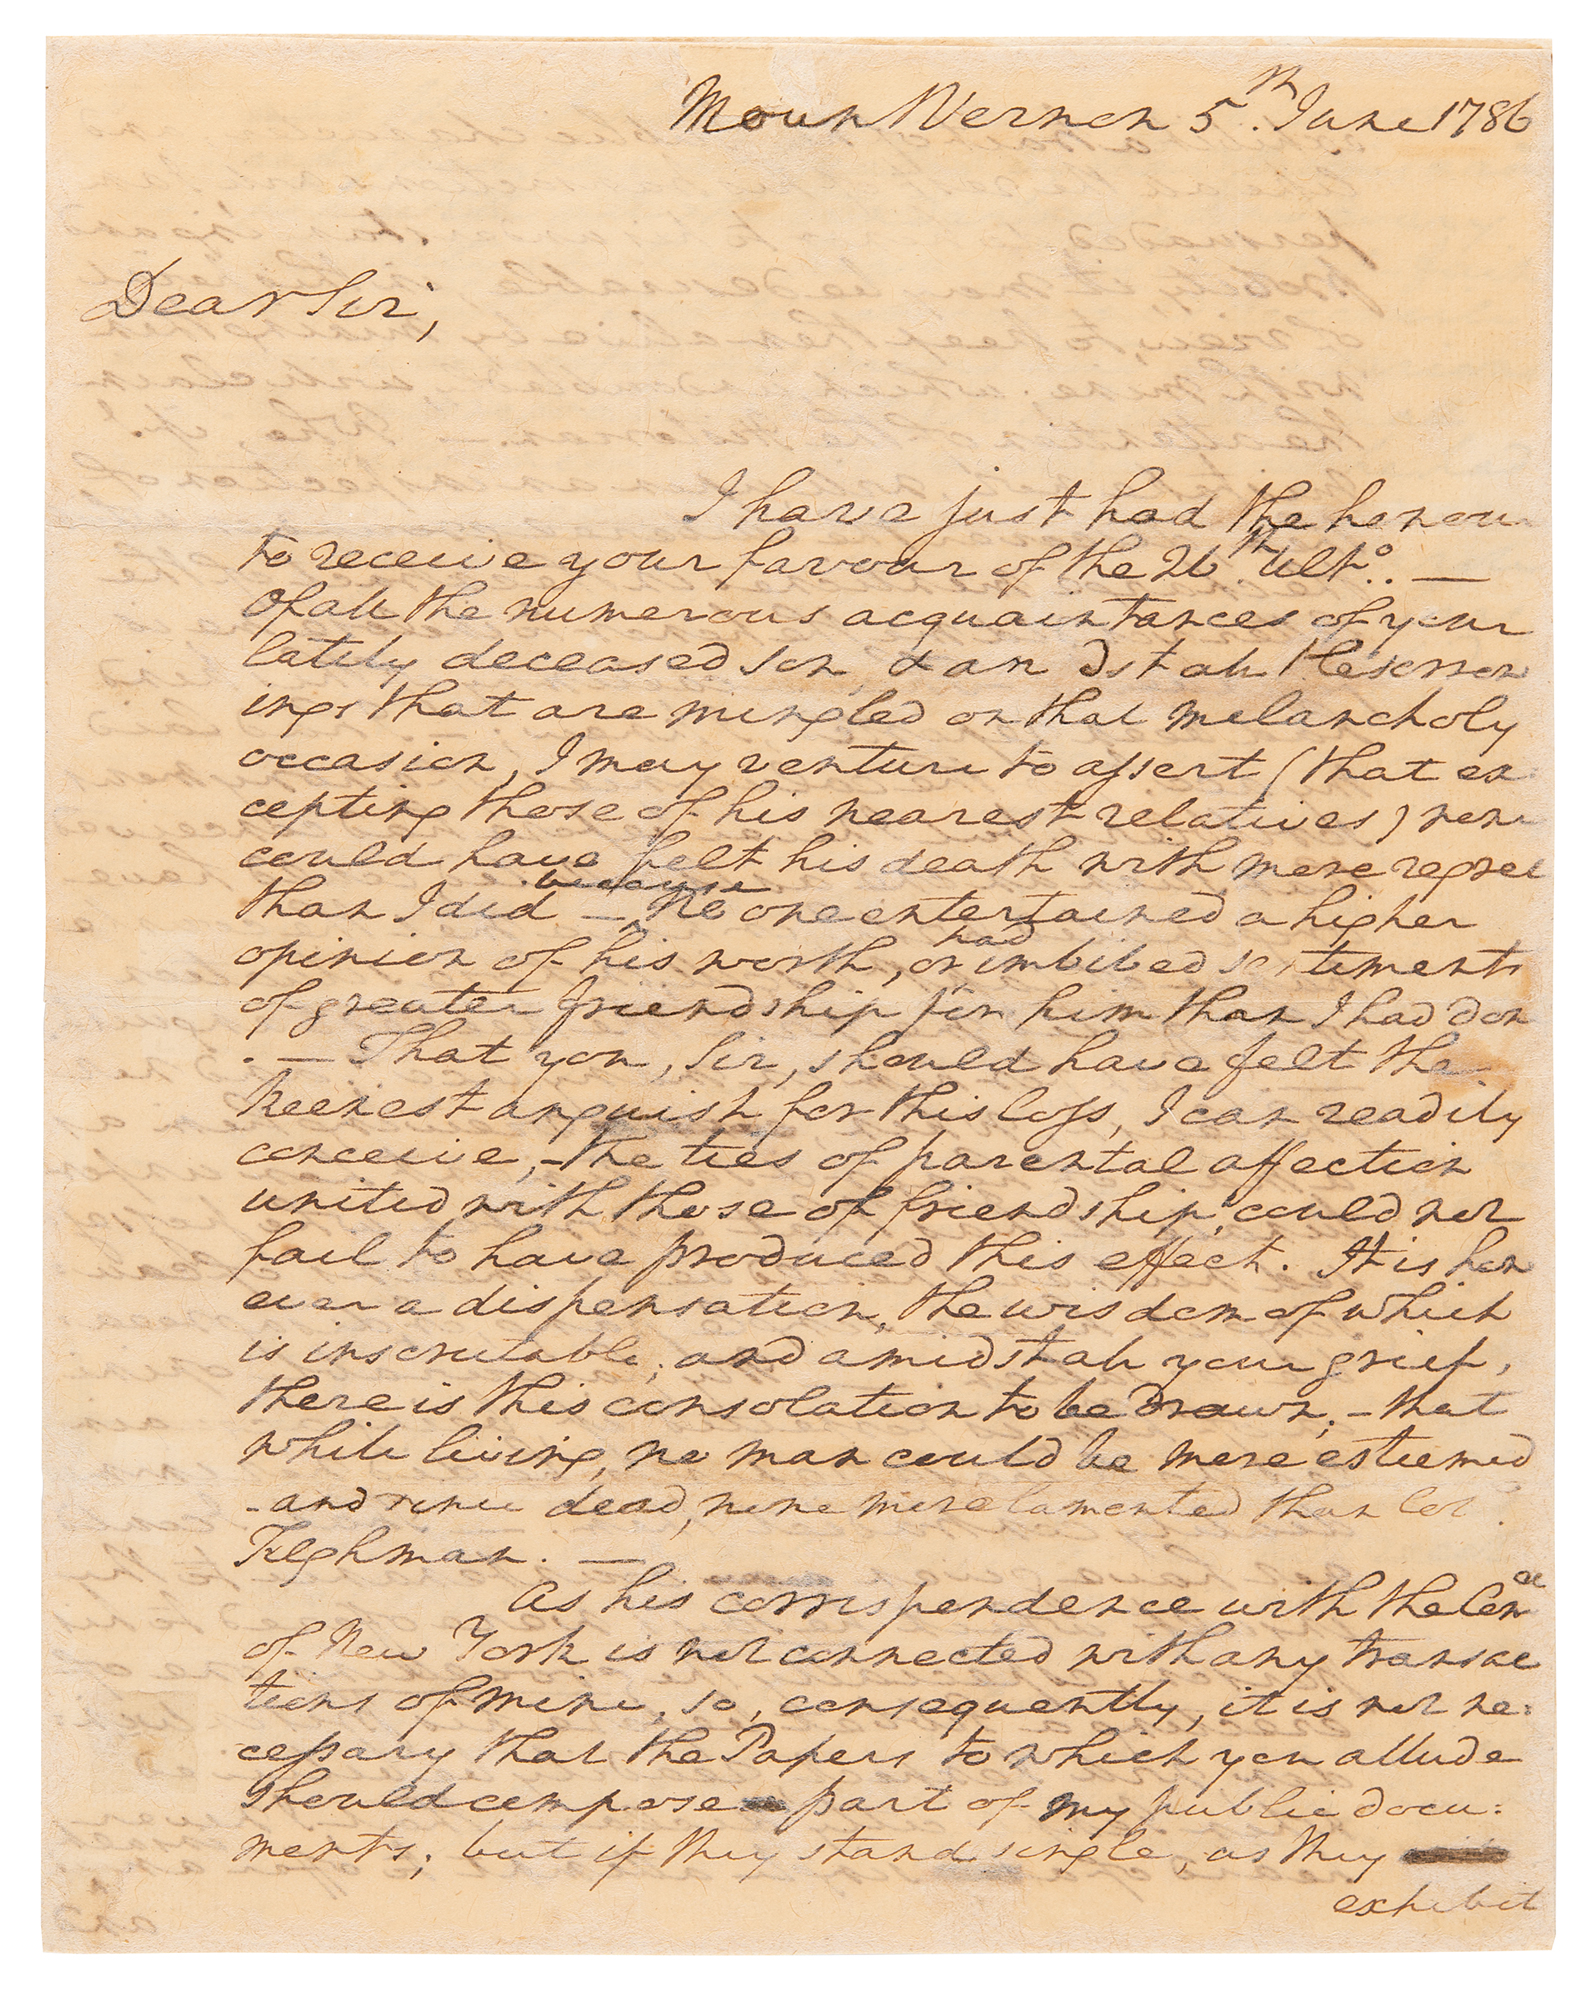 Mount Vernon 5th. June 1786
Dear Sir,
I have just had the honour
to receive your favour of the 26th. Ulto. —
Of all the numerous acquaintances of your
lately deceased son, & amidst all the sorrow
ings that are mingled on that melancholy
occasion, I may venture to assert (that ex
cepting those of his nearest relatives) none
could have felt his death with more regret
because
than I did — No one entertained a higher
had
opinion of his worth, or imbibed sentiments
of greater friendship for him than I had don
. — That you, Sir, should have felt the
keenest anguish for this loss, I can readily
conceive, — the ties of parental affection
united with those of friendship, could not
fail to have produced this effect. It is how
ever a dispensation, the wisdom of which
is inscrutable; and amidst all your grief,
there is this consolation to be drawn, — that
while living, no man could be more esteemed
- and since dead, none more lamented than Colo.
Tilghman. —
As his correspondence with the Comee
of New York is not connected with any transac
tions of mine, so, consequently, it is not ne:
cessary that the Papers to which you allude
should compose part of my public docu:
ments; but if they stand single, as they
exhibit